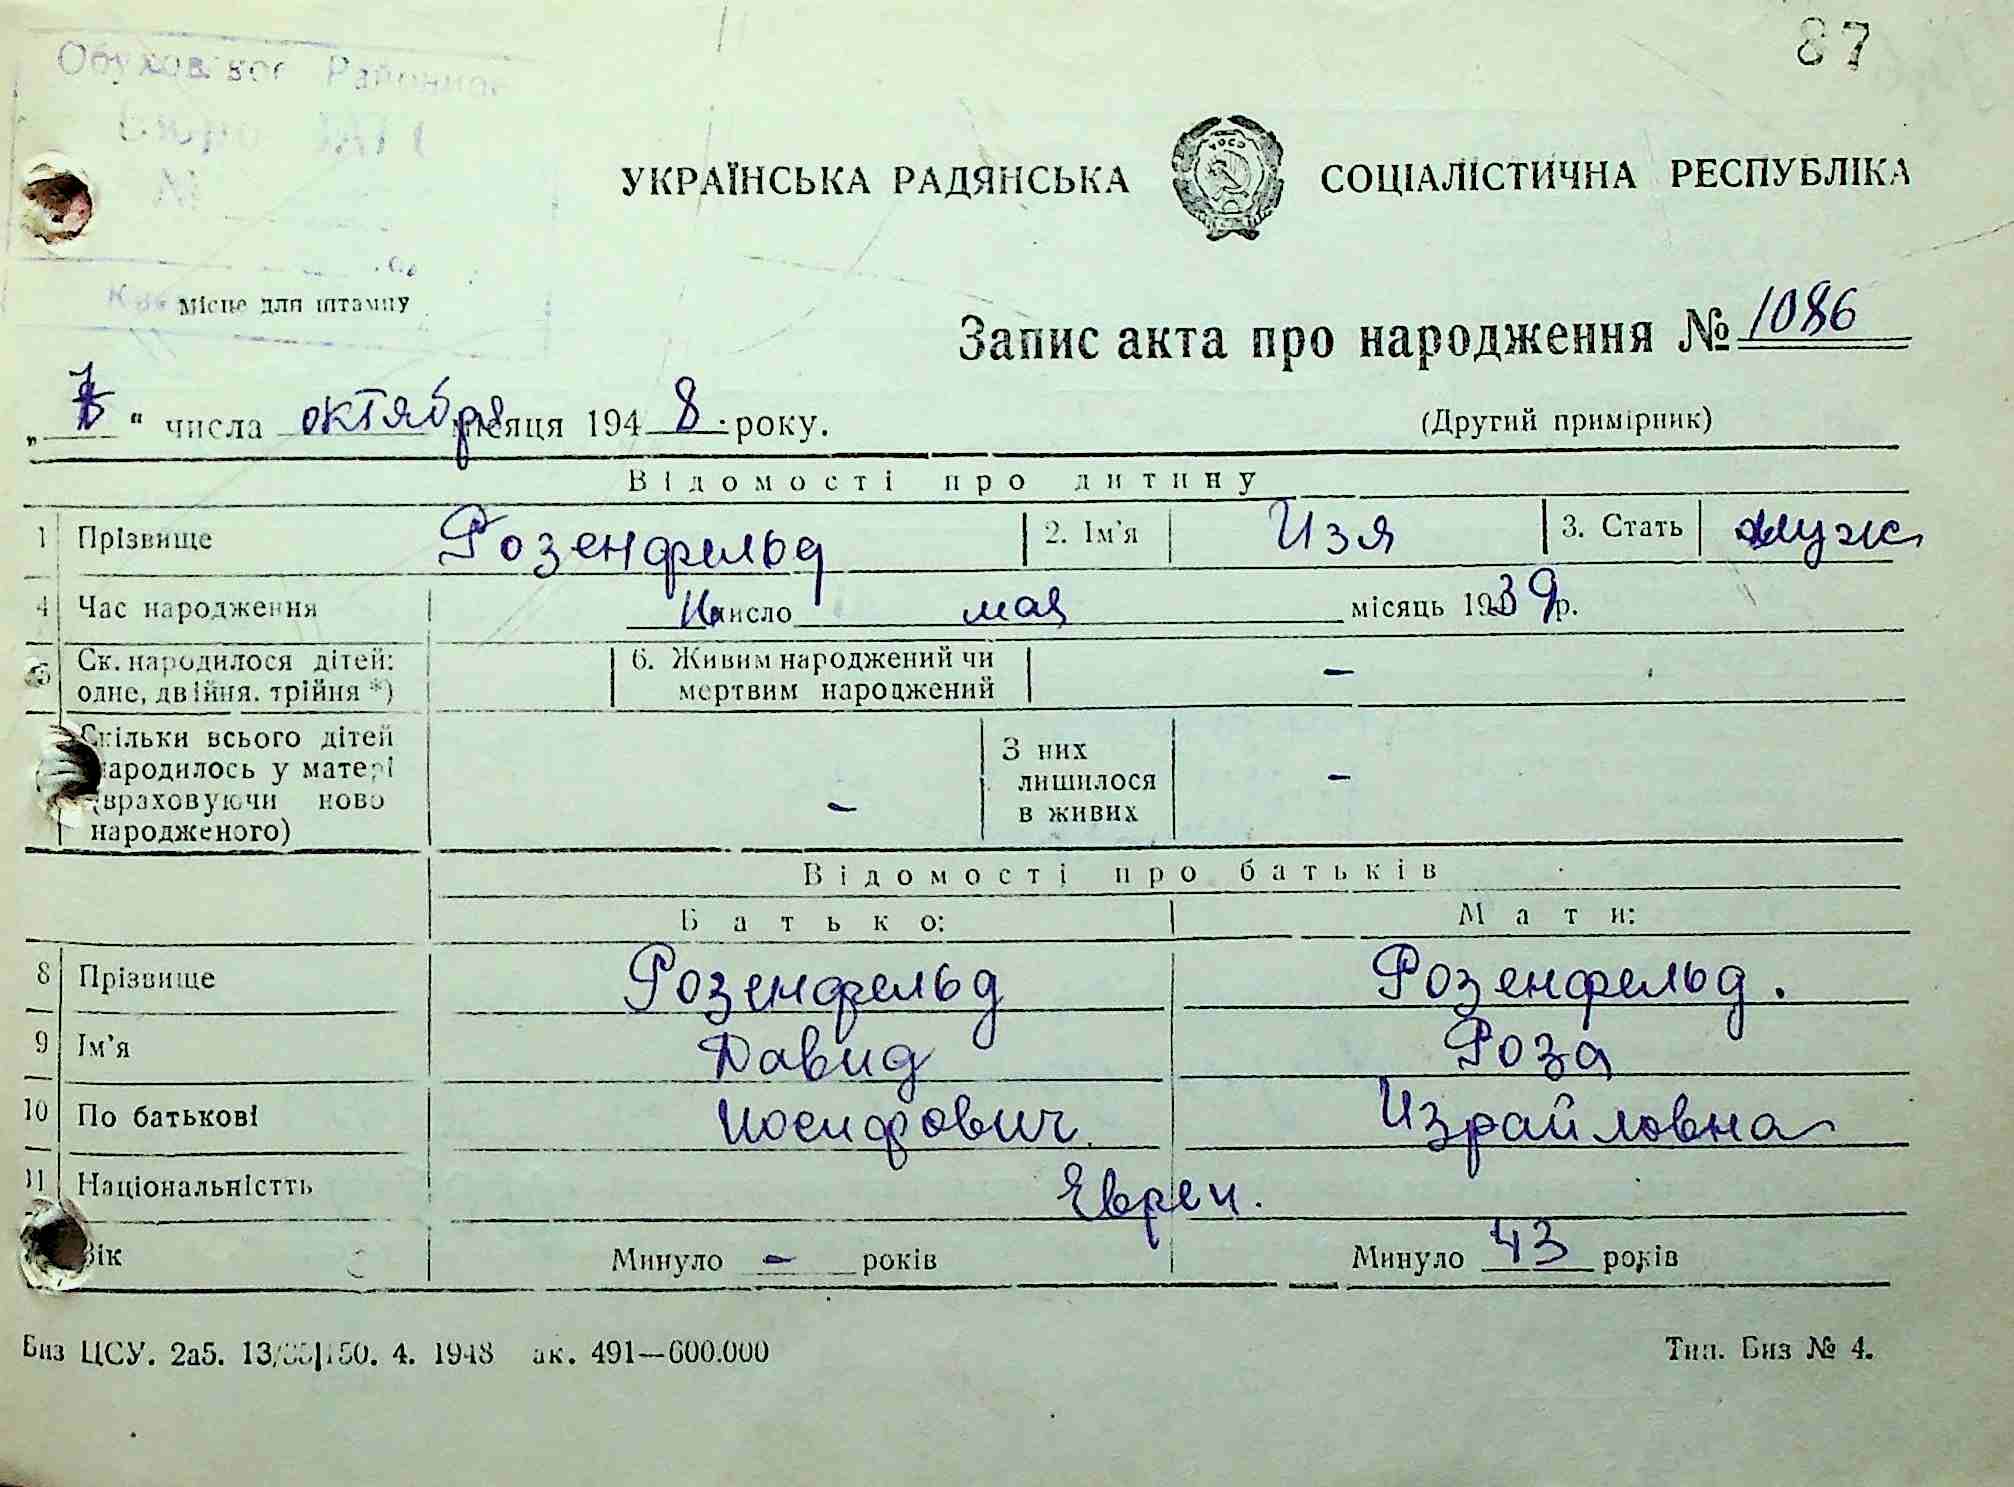 87
Районное
УКРАЇНСЬКА РАДЯНСЬКА СОЦІАЛІСТИЧНА РЕСПУБЛІКА
Місце для штампу
Запис акта про народження № 1086
„ “ числа октября місяця 1948 року.
(Другий примірник)
Відомості про дитину
1 Прізвище Розенфельд 2. Ім’я Изя 3. Стать муж
4 Час народження число мая місяць 1939 р.
5 Ск. народилося дітей: 6. Живим народжений чи –
одне, двійня. трійня *) мертвим народжений
Скільки всього дітей З них
народилось у матері лишилося –
(враховуючи ново – в живих
народженого)
Відомості про батьків
Батько: Мати:
8 Прізвище Розенфельд Розенфельд.
9 Ім’я Давид Роза
10 По батькові Иосифович Израйловна
11 Національністть Евреи.
Вік Минуло – років Минуло 43 років
Биз ЦСУ. 2а5. 4. 1948 ак. 491—600.000
Тип. Биз № 4.